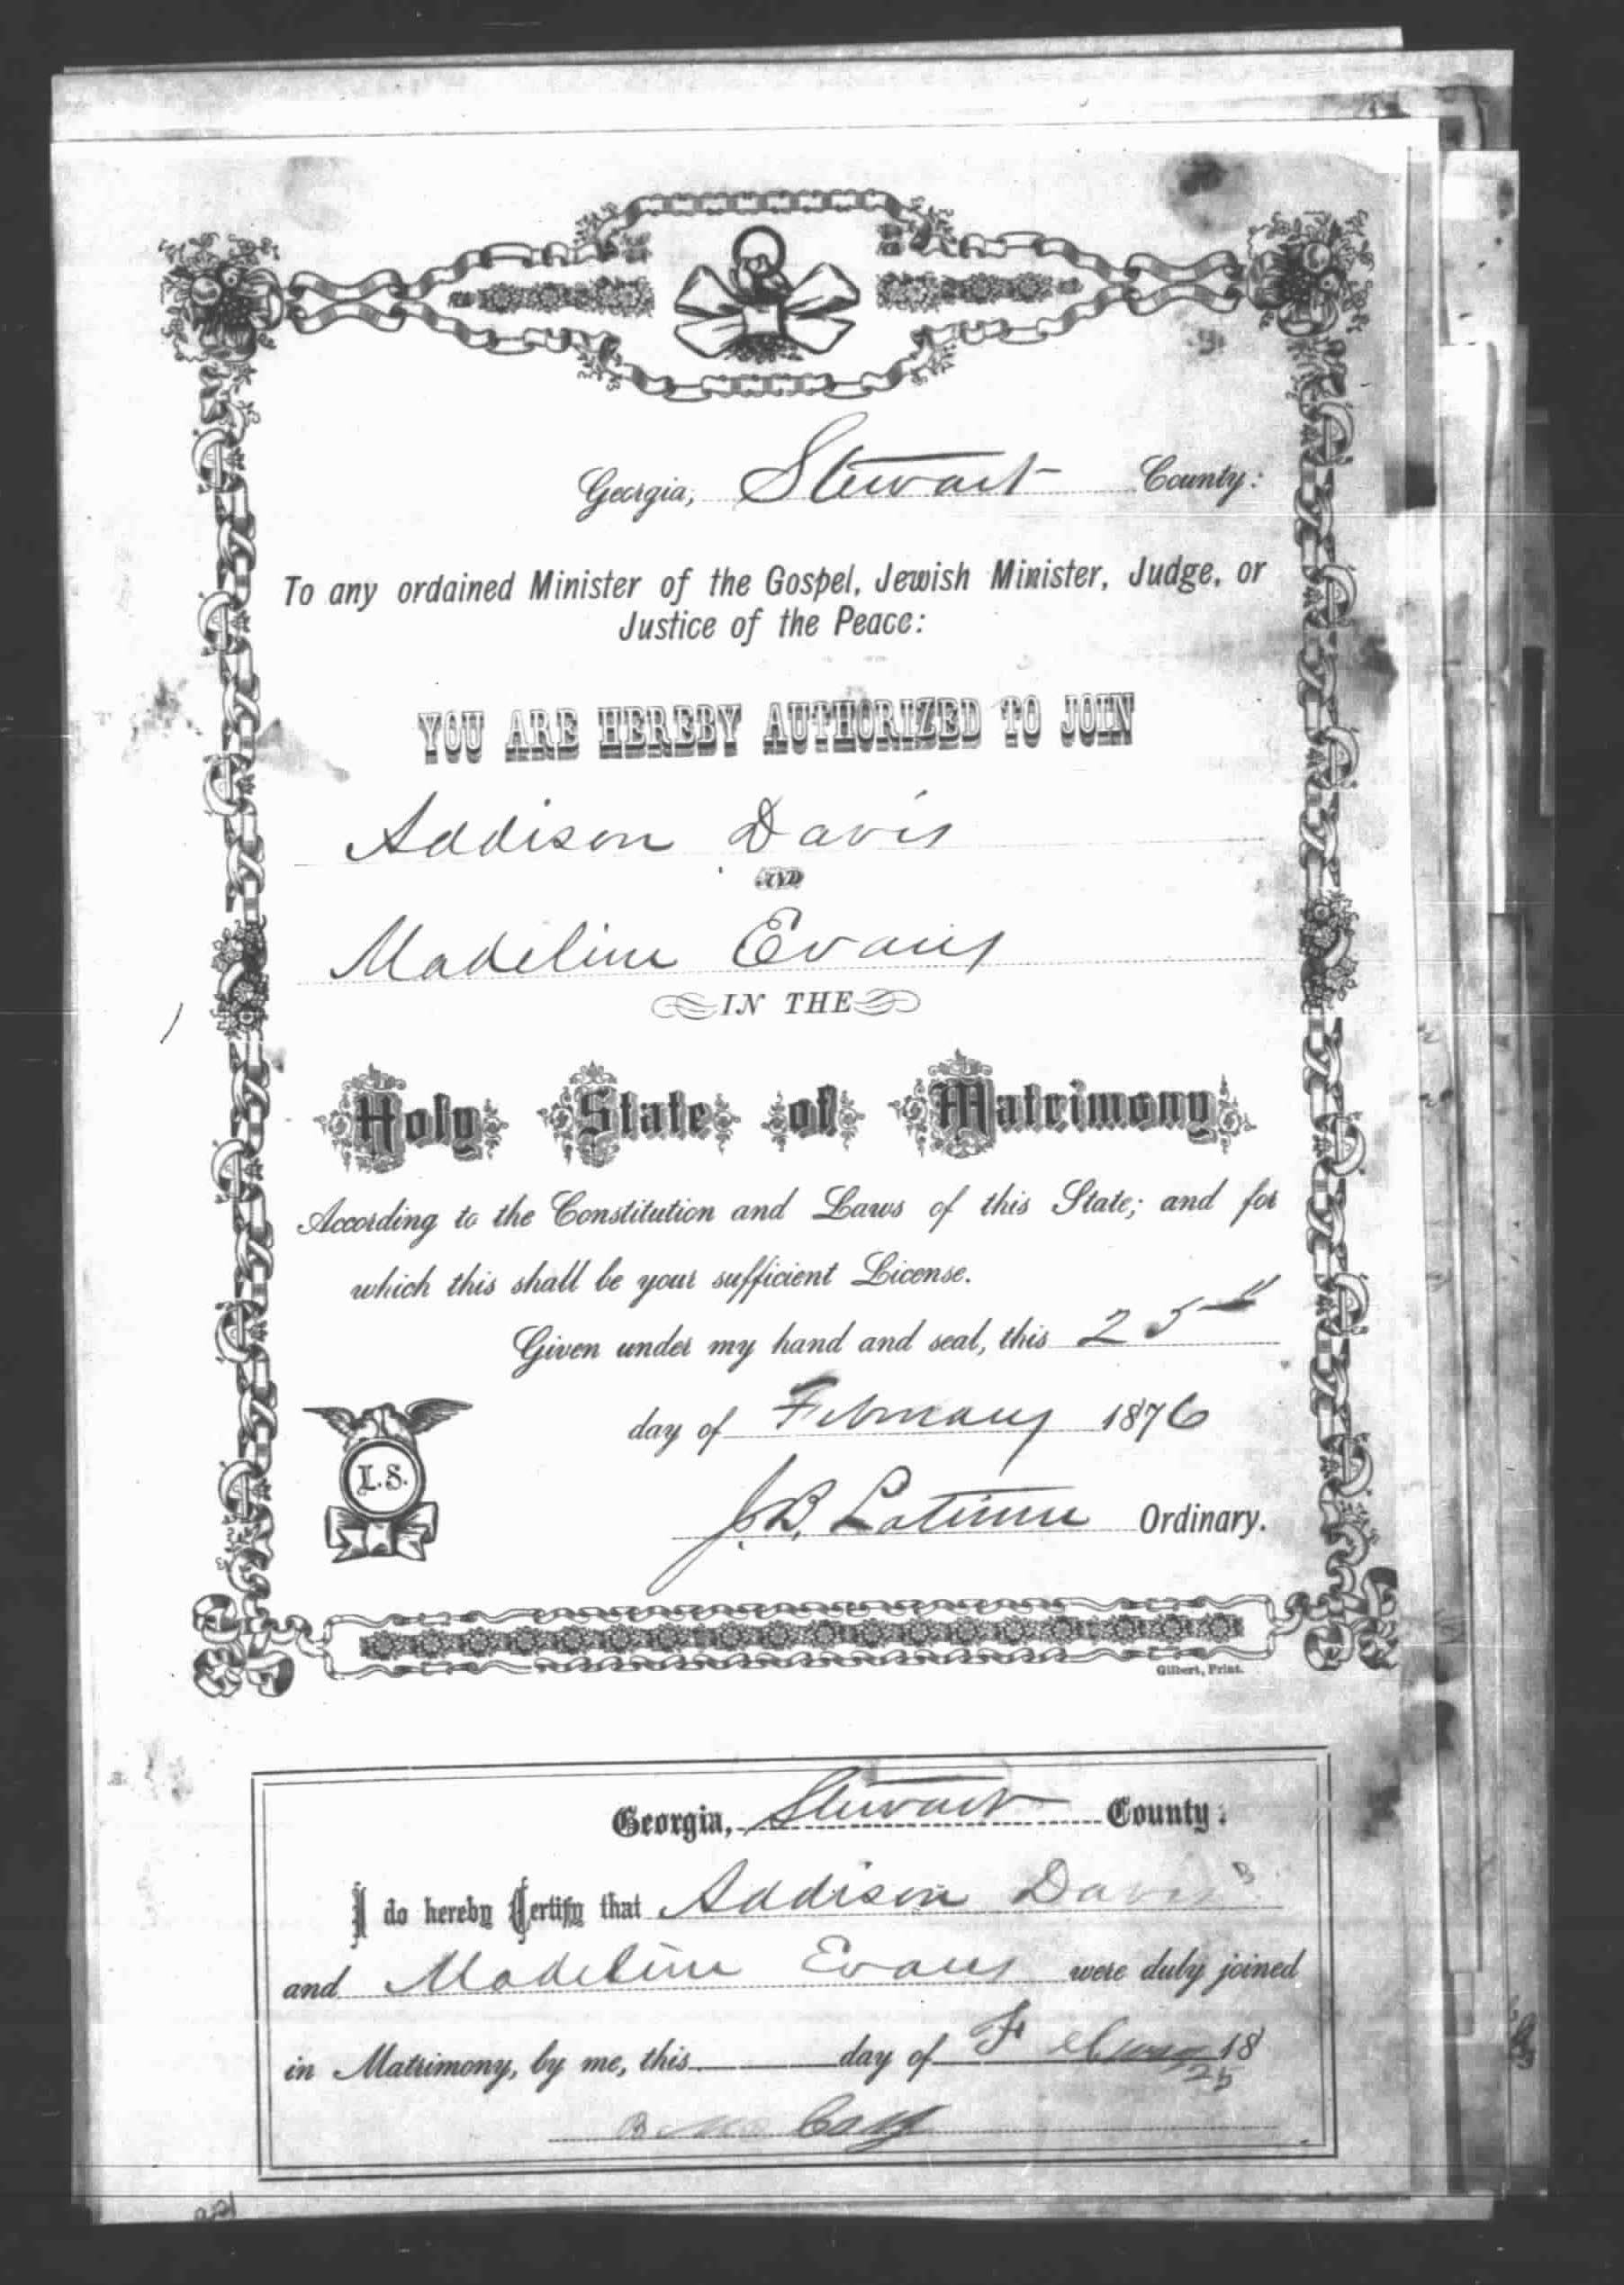 Georgia, Stewart County:
To any ordained Minister of the Gospel, Jewish Minister, Judge, or
Justice of the Peace:
YOU ARE HEREBY AUTHORIZED TO JOIN
Addison Davis
AND
Madeline Evans
IN THE
Holy State of Matrimony
According to the Constitution and Laws of this State; and for
which this shall be your sufficient License.
Given under my hand and seal, this 25th
day of February 1876
L.S.
J.B. Latimer Ordinary.
Gilbert, Print.
Georgia, Stewart County:
I do hereby Certify that Addison Davis
and Madeline Evans were duly joined
in Matrimony, by me, this day of February 18
25